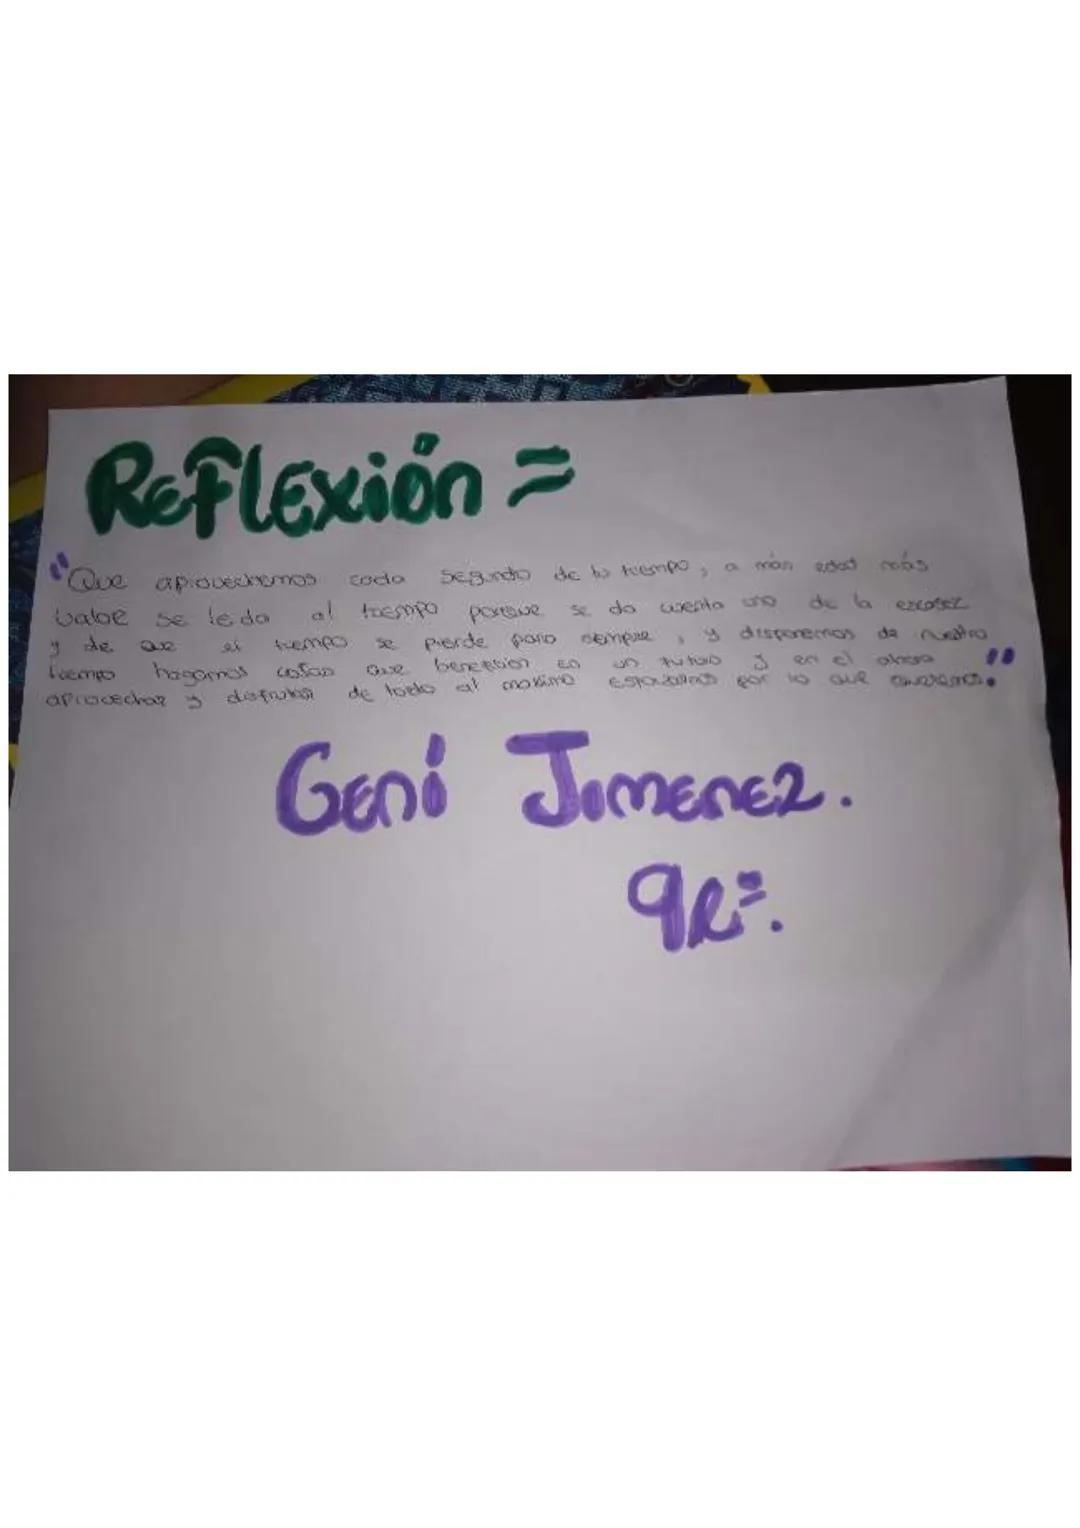 Reflexión =
"Que aprovechemos cada segundo de tu tiempo, a más edad más
valor se le da al tiempo porque se da cuenta uno de la escasez
y de que el tiempo se pierde para siempre, y disponemos de nuestro
tiempo hagamos cosas que benefician en un futuro y en el ahora
aprovechar y disfrutar de todo al maximo por lo que queremos."
Gení Jimenez.